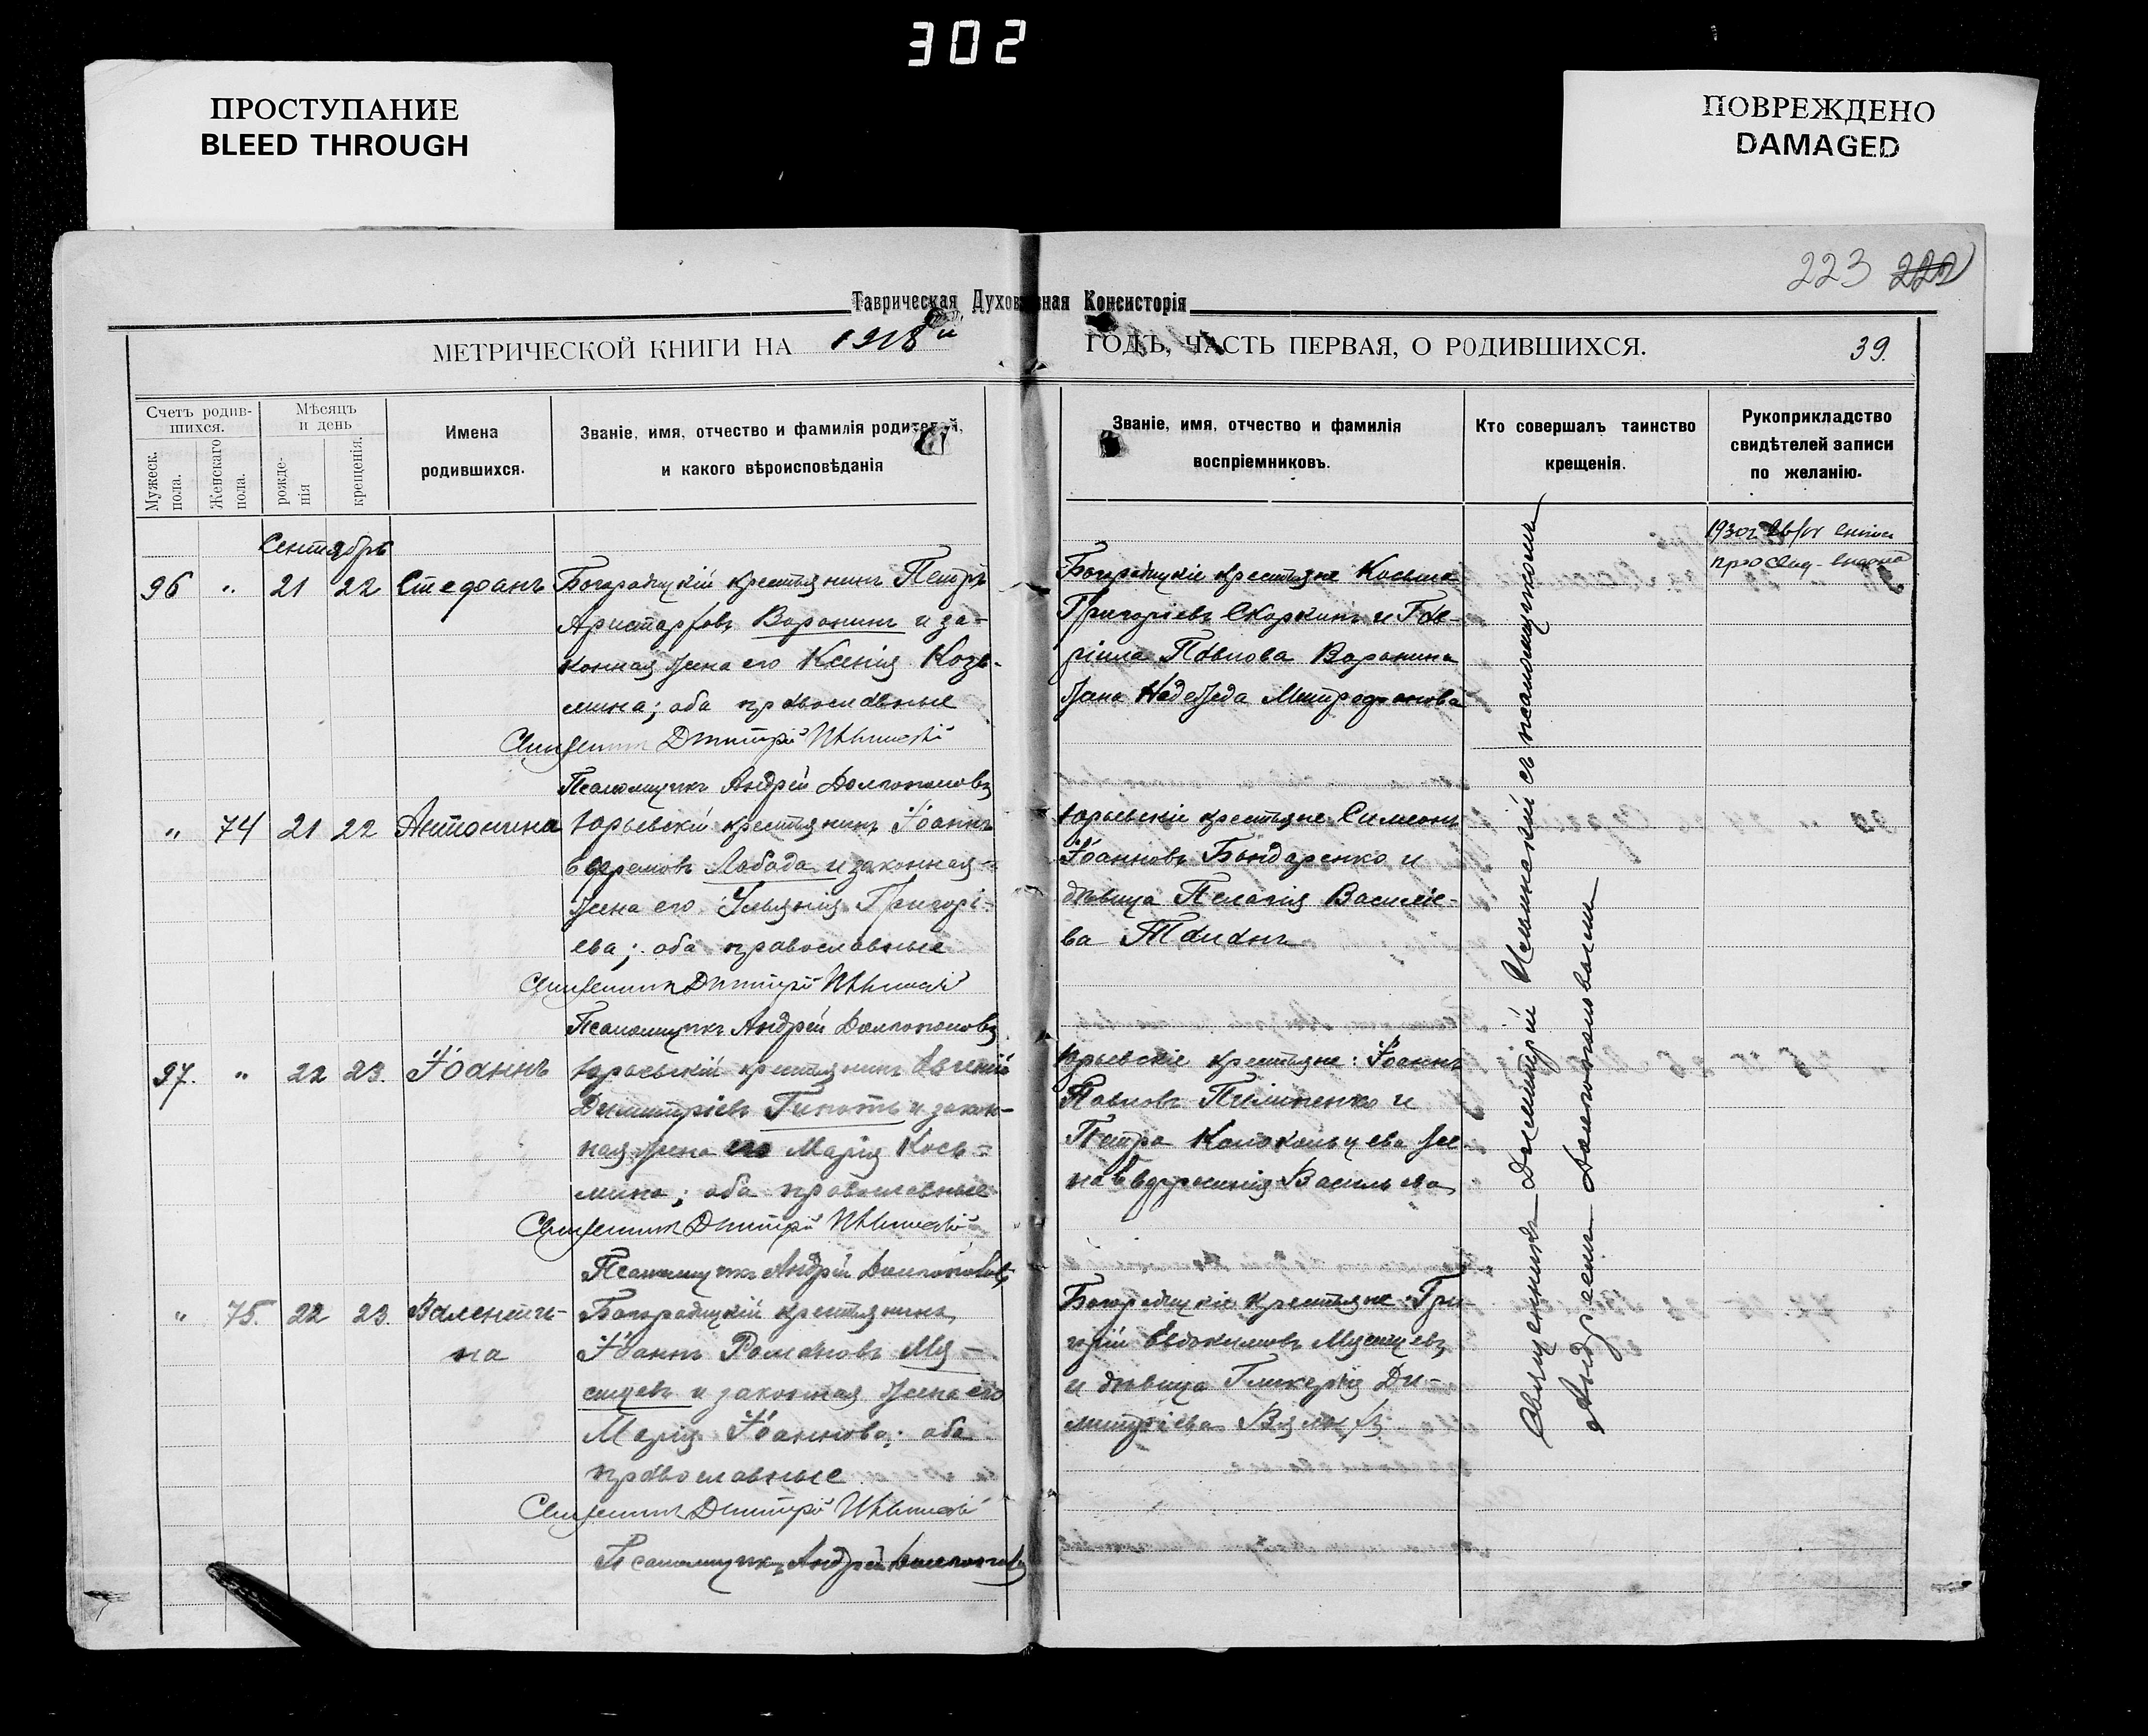 302
ПРОСТУПАНИЕ
BLEED THROUGH
ПОВРЕЖДЕНО
DAMAGED
223 222
Таврическая Духовная Консисторія
МЕТРИЧЕСКОЙ КНИГИ НА 1918й ГОДЪ, ЧАСТЬ ПЕРВАЯ, О РОДИВШИХСЯ.
39.
Счетъ родив-
шихся.
Мужеск.
пола.
Женскаго
пола.
Мѣсяцъ
и день
рожде-
нія
крещенія.
Имена
родившихся.
Званіе, имя, отчество и фамилія родителей,
и какого вѣроисповѣданія
Званіе, имя, отчество и фамилія
воспріемниковъ.
Кто совершалъ таинство
крещенія.
Рукоприкладство
свидѣтелей записи
по желанію.
Сентябрь
96 " 21 22 Стефанъ
Богородицкій крестьянинъ Петръ
Аристарховъ Воронинъ и за-
конная жена его Ксенія Козь-
мина; оба православные
Священникъ Димитрій
Псаломщикъ Андрей Долгополовъ
Богородицкіе крестьяне Косьма
Григоріевъ Скоркинъ и Гав-
ріила Павлова Воронина
жена Надежда Митрофанова
1930г
" 74 21 22 Антонина
Юрьевскій крестьянинъ Іоаннъ
Ефремовъ Лобода и законная
жена его Ульянія Григорі-
ева; оба православные
Священникъ Димитрій
Псаломщикъ Андрей Долгополовъ
Юрьевскіе крестьяне Симеонъ
Іоанновъ Бондаренко и
дѣвица Пелагія Василіе-
ва Таранъ
97. " 22 23. Іоаннъ
Юрьевскій крестьянинъ Евгеній
Димитріевъ и закон-
ная жена его Марія Кось-
мина; оба православные
Священникъ Димитрій
Псаломщикъ Андрей Долгополовъ
Юрьевскіе крестьяне: Іоаннъ
Павловъ Пилипенко и
Петра Колокольцева же-
на Евфросинія Васильева
" 75. 22 23. Валенти-
на
Богородицкій крестьянинъ
Іоаннъ Романовъ Мя-
сищевъ и законная жена его
Марія Іоаннова; оба
православные
Священникъ Димитрій
Псаломщикъ Андрей Долгополовъ
Богородицкіе крестьяне: Гри-
горій Евдокимовъ Мясищевъ
и дѣвица Гликерія Ди-
митріева
Священникъ Димитрій съ псаломщикомъ
Андреемъ Долгополовымъ